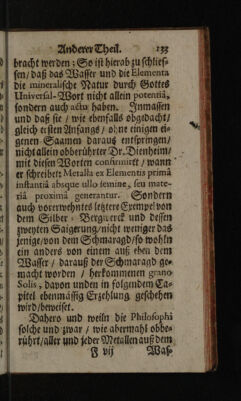 Anderer Theil. 133
bracht werden: So ist hierab zu schlies-
sen/ daß das Wasser und die Elementa
die mineralische Natur durch Gottes
Universal-Wort nicht allein potentiâ,
sondern auch actu haben. Inmassen
und daß sie / wie ebenfalls obgedacht/
gleich ersten Anfangs/ ohne einigen ei-
genen Saamen daraus entspringen/
nicht allein obberührter Dr. Dienheim/
mit diesen Worten confirmirt / wann
er schreibet: Metalla ex Elementis primâ
instantiâ absque ullo semine, seu mate-
riâ proximâ generantur. Sondern
auch vorerwehntes letztere Exempel von
dem Silber-Bergwerck und dessen
zweyten Saigerung/ nicht weniger das
jenige/ von dem Schmaragd/ so wohl
ein anders von einem aus eben dem
Wasser / daraus der Schmaragd ge-
macht worden / herkommenen grano
Solis, davon unden in folgendem Ca-
pitel ebenmässig Erzehlung geschehen
wird/ beweiset.
Dahero und weiln die Philosophi
solche und zwar / wie abermahl obbe-
rührt/ aller und jeder Metallen aus dem
F vij Was-